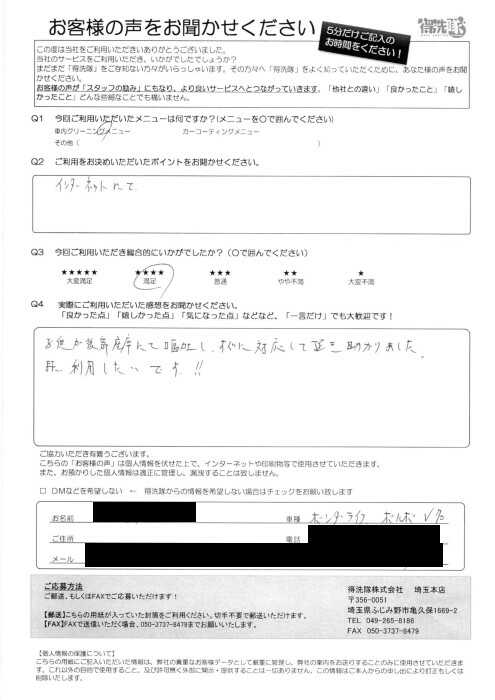 お客様の声をお聞かせください
5分だけご記入の
お時間をください!
得洗隊
この度は当社をご利用いただきありがとうございました。
当社のサービスをご利用いただき、いかがでしたでしょうか?
まだまだ「得洗隊」をご存知ない方々がいらっしゃいます。その方々へ「得洗隊」をよく知っていただくために、あなた様の声をお聞かせください。
お客様の声が「スタッフの励み」にもなり、より良いサービスへとつながっていきます。「他社との違い」「良かったこと」「嬉しかったこと」どんな些細なことでも構いません。
Q1 今回ご利用いただいたメニューは何ですか?(メニューを○で囲んでください)
車内クリーニングメニュー カーコーティングメニュー
その他( )
Q2 ご利用をお決めいただいたポイントをお聞かせください。
インターネットにて
Q3 今回ご利用いただき総合的にいかがでしたか?(○で囲んでください)
★★★★★ ★★★★ ★★★ ★★ ★
大変満足 満足 普通 やや不満 大変不満
Q4 実際にご利用いただいた感想をお聞かせください。
「良かった点」「嬉しかった点」「気になった点」などなど、「一言だけ」でも大歓迎です!
にて嘔吐し、すぐに対応して 助かりました。
利用したいです!!
ご協力いただき有難うございます。
こちらの「お客様の声」は個人情報を伏せた上で、インターネットや印刷物等で使用させていただきます。
また、お預かりした個人情報は適正に管理し、漏洩することは致しません。
□ DMなどを希望しない ← 得洗隊からの情報を希望しない場合はチェックをお願い致します
お名前 車種 ホンダライフ ボルボ V70
ご住所 電話
メール
ご応募方法
ご郵送、もしくはFAXでご応募いただけます!
【郵送】こちらの用紙が入っていた封筒をご利用ください。切手不要で郵送いただけます。
【FAX】FAXで送信いただく場合、050-3737-8479までお願いいたします。
得洗隊株式会社 埼玉本店
〒356-0051
埼玉県ふじみ野市亀久保1669-2
TEL 049-265-8186
FAX 050-3737-8479
【個人情報の保護について】
こちらの用紙にご記入いただいた情報は、弊社の貴重なお客様データとして厳重に管理し、弊社の案内をお送りすることのみに使用させていただきます。これ以外の目的で使用すること、及び許可無く外部に開示・提供することは一切ありません。この情報はご本人からの申し出によりいつでも訂正もしくは削除いたします。